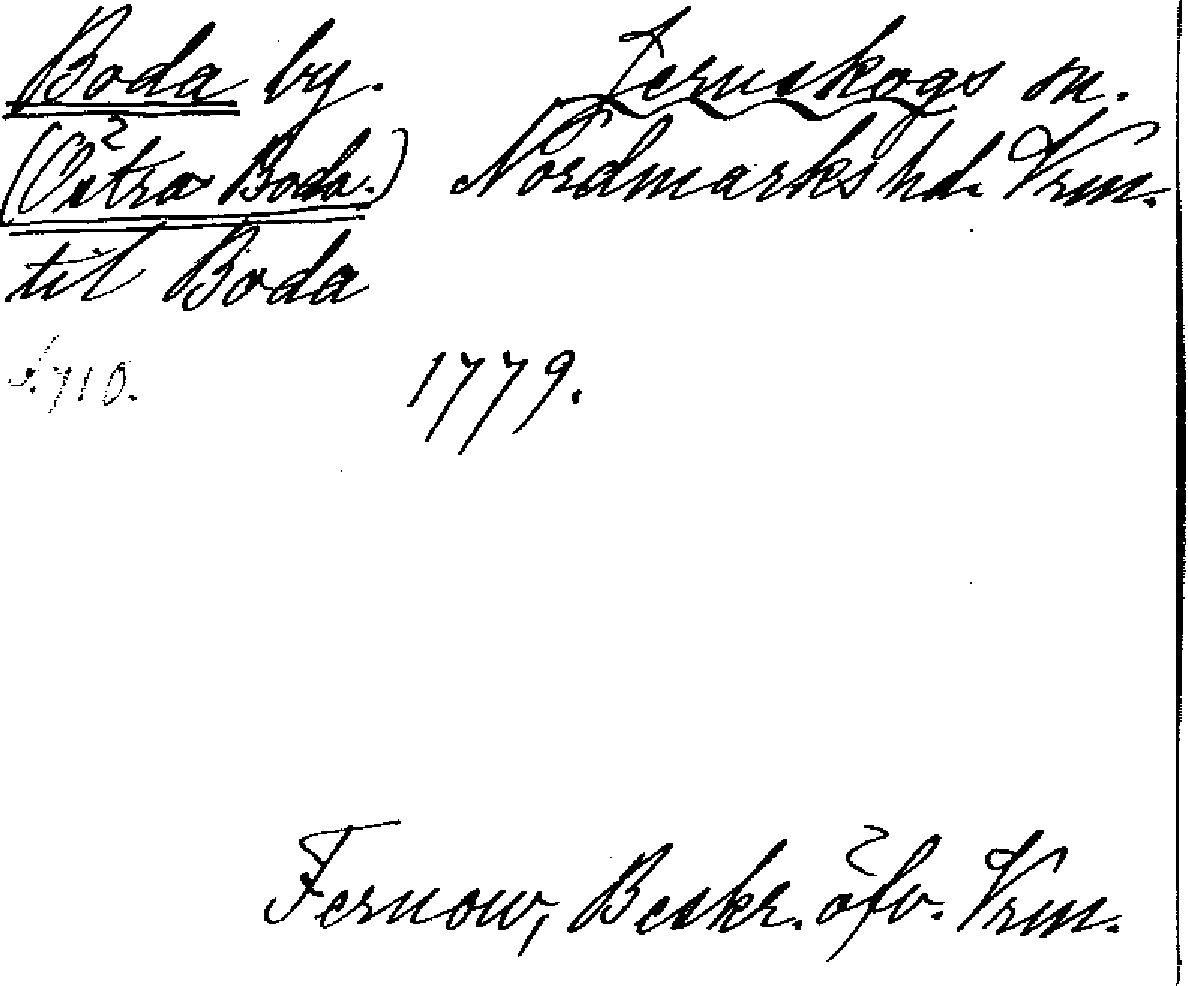 Boda by. Jernskogs sn.
(Östra Boda.) Nordmarks hd. Vrm.
til Boda
s. 710. 1779.
Fernow, Beskr. öfv. Vrm.